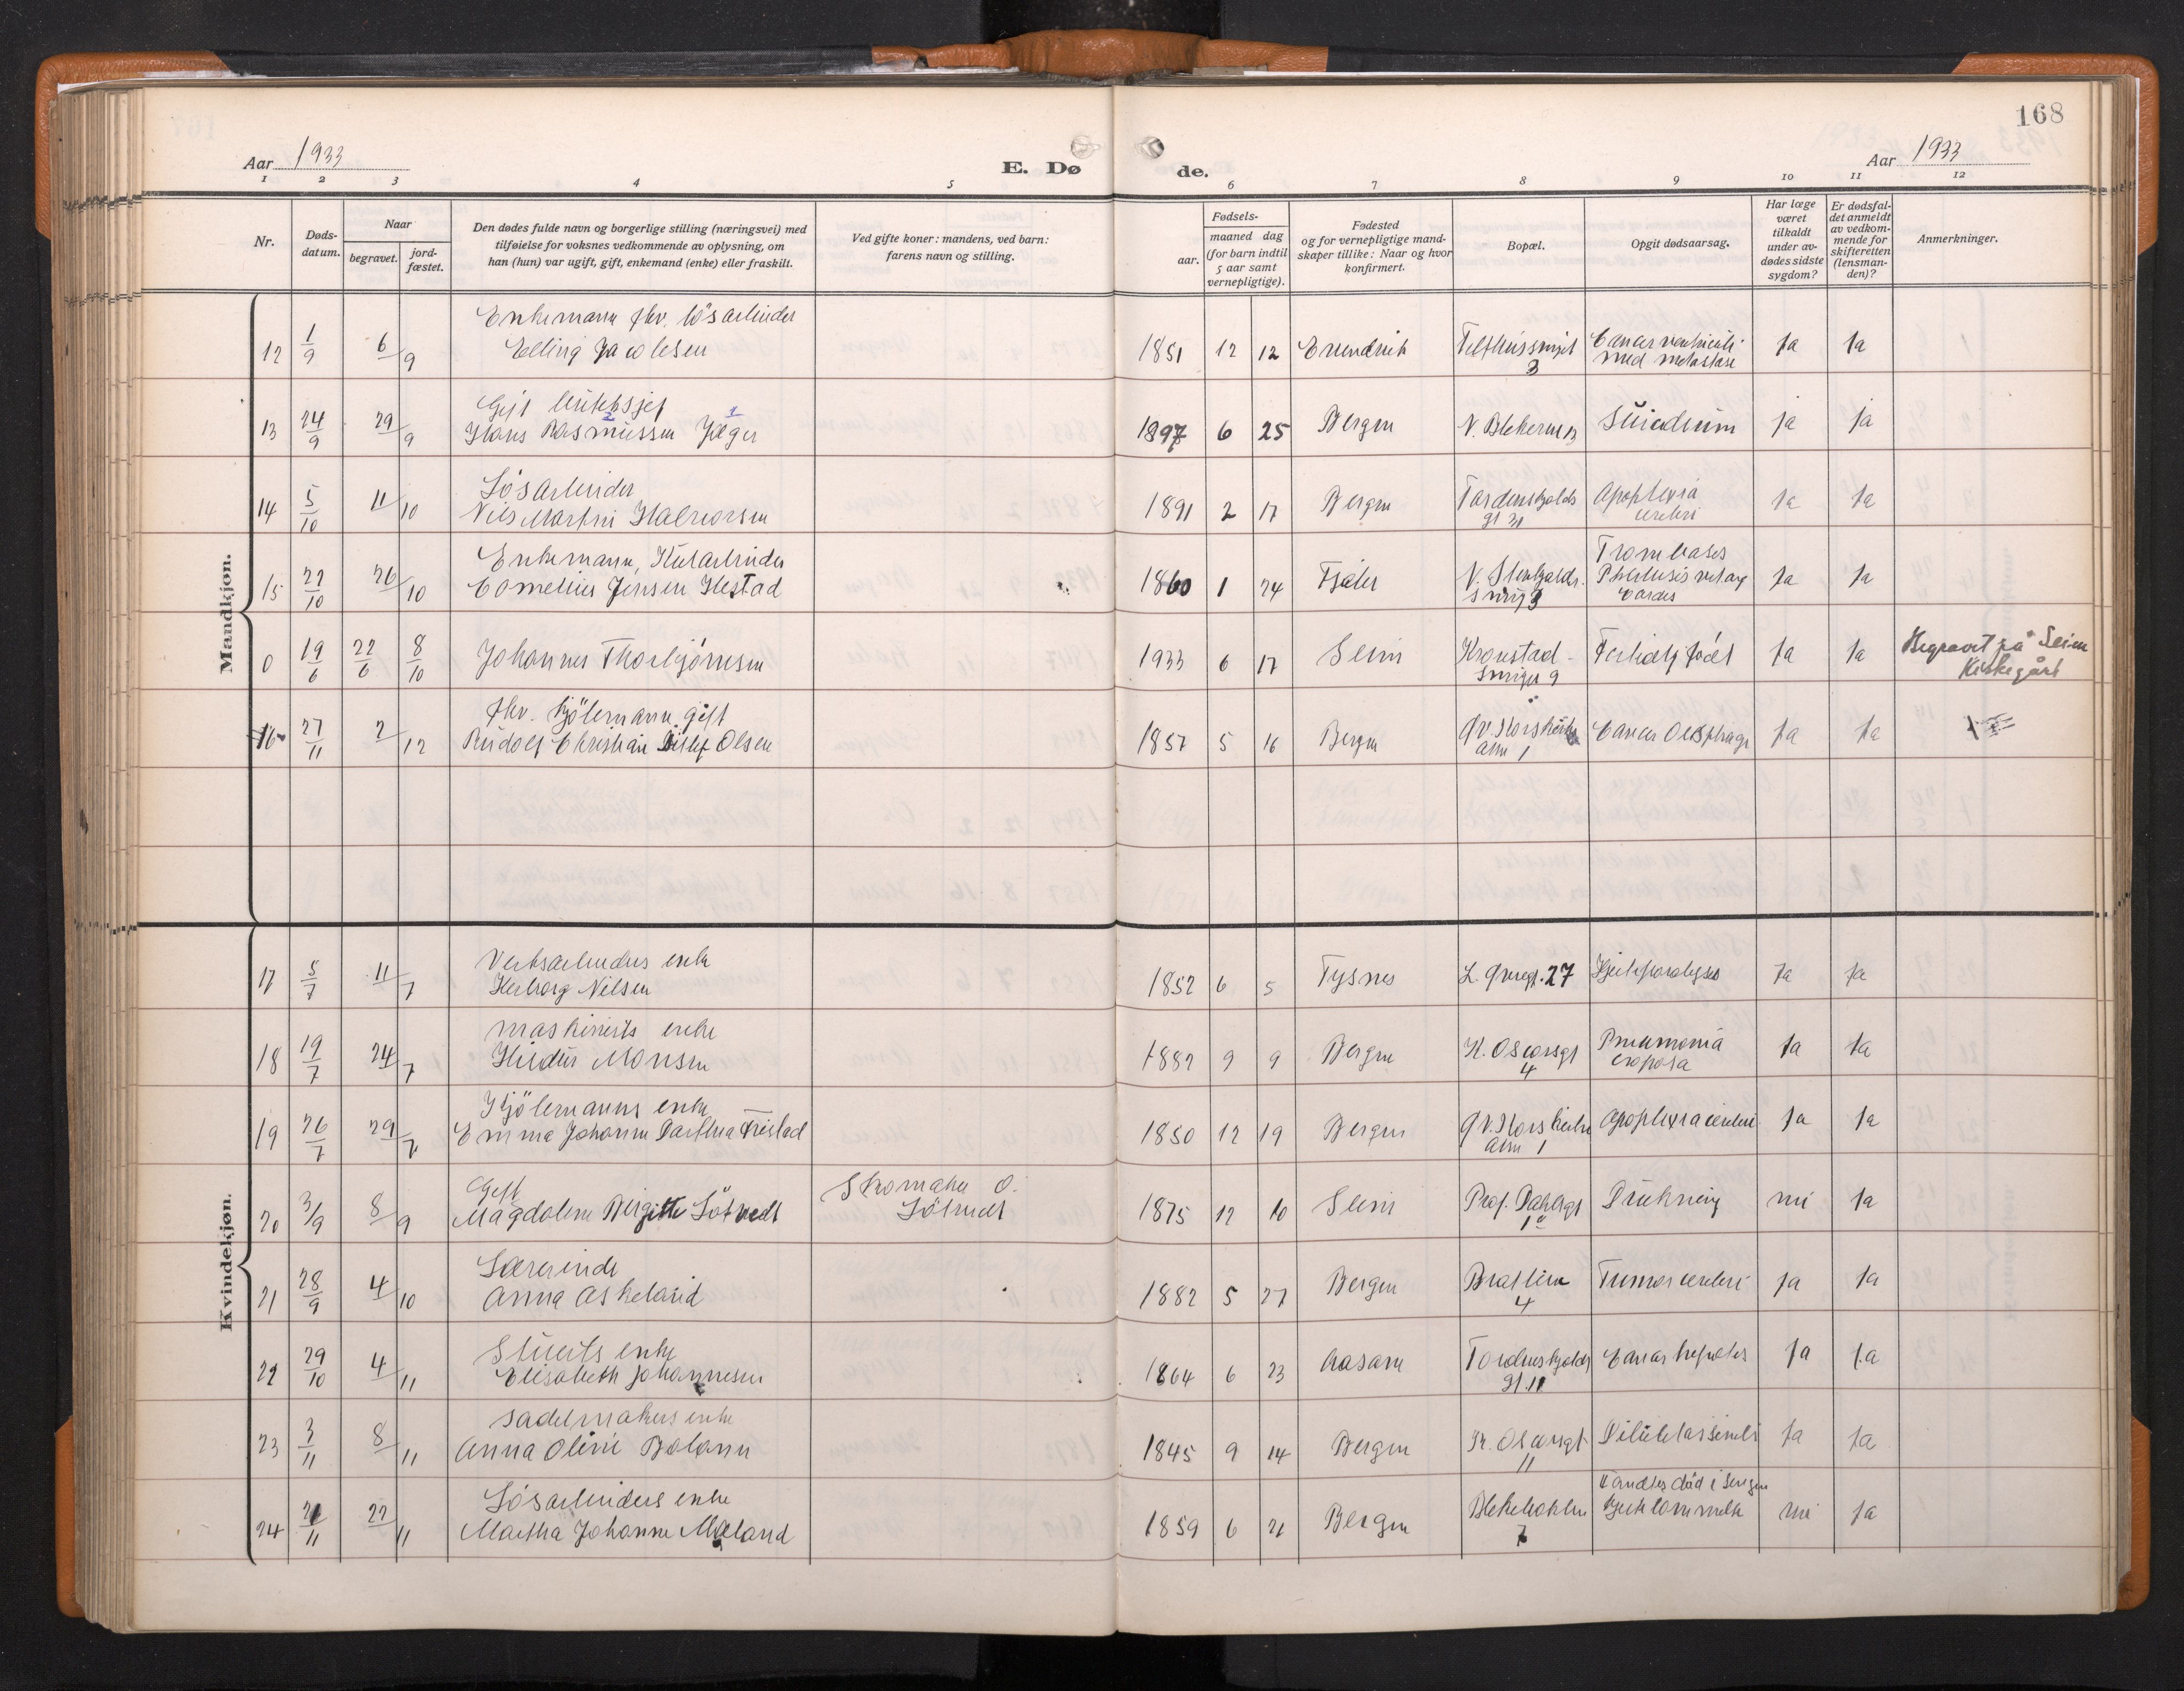 168
Aar 1933
E. Dø
de.
Aar 1933
1 2 3 4 5 6 7 8 9 10 11 12
Nr.
Døds-
datum.
Naar
begravet.
jord-
fæstet.
Den dødes fulde navn og borgerlige stilling (næringsvei) med
tilføielse for voksnes vedkommende av oplysning, om
han (hun) var ugift, gift, enkemand (enke) eller fraskilt.
Ved gifte koner: mandens, ved barn:
farens navn og stilling.
Fødsels-
aar.
maaned dag
(for barn indtil
5 aar samt
vernepligtige).
Fødested
og for vernepligtige mand-
skaper tillike: Naar og hvor
konfirmert.
Bopæl.
Opgit dødsaarsag.
Har læge
været
tilkaldt
under av-
dødes sidste
sygdom?
Er dødsfal-
det anmeldt
av vedkom-
mende for
skifteretten
(lensman-
den)?
Anmerkninger.
Mandkjøn.
Enkemann fhv. løsarbeider
12 1/9 6/9 Elling Jacobsen 1851 12 12 3 med metastase Ja Ja
Gift
13 24/9 29/9 Hans Rasmussen Jæger 1897 6 25 Bergen Suicidium ja ja
Løsarbeider
14 5/10 11/10 Nils Martin Halvorsen 1891 2 17 Bergen Tordenskjolds gt 31 Apoplexia cerebri Ja Ja
Enkemann,
15 22/10 26/10 Cornelius Jensen Hestad 1860 1 24 Fjaler Ja Ja
0 19/6 22/6 8/10 Johannes Thorbjörnsen 1933 6 17 Seim Kronstad-
smuget 9 født Ja Ja Begravet på Seim
Kirkegård
fhv. kjölemann gift
16 27/11 2/12 Rudolf Christian Olsen 1857 5 16 Bergen alm 1 Cancer Oesophagi Ja Ja
Kvindekjøn.
Verksarbeiders enke
17 5/7 11/7 Herborg Nilsen 1852 6 5 Tysnes 27 Hjerteparalyse Ja Ja
maskinists enke
18 19/7 24/7 Monsen 1882 9 9 Bergen K. Oscarsgt
4 Pneumonia
croposa Ja Ja
Kjölemanns enke
19 26/7 29/7 Emma Johanne 1850 12 19 Bergen alm 1 Apoplexia cerebri Ja Ja
Gift
20 3/9 8/9 Magdalene Birgitte Søtvedt Skomaker O.
Søtvedt 1875 12 10 Seim Prof. Dahlsgt
1a Drukning nei Ja
Lærerinde
21 28/9 4/10 Anna Askeland 1882 5 27 Bergen Bratlien
4 Tumor cerebri Ja Ja
Stuerts enke
22 29/10 4/11 Elisabeth Johannesen 1864 6 23 Aasane Tordenskjolds
gt. 11 Cancer hepatis Ja Ja
Sadelmakers enke
23 3/11 8/11 Anna Oline Bolann 1845 9 14 Bergen K. Oscarsgt
11 Ja Ja
Løsarbeiders enke
24 21/11 27/11 Martha Johanne Mæland 1859 6 21 Bergen Blekebakken
7 død i sengen
nei Ja